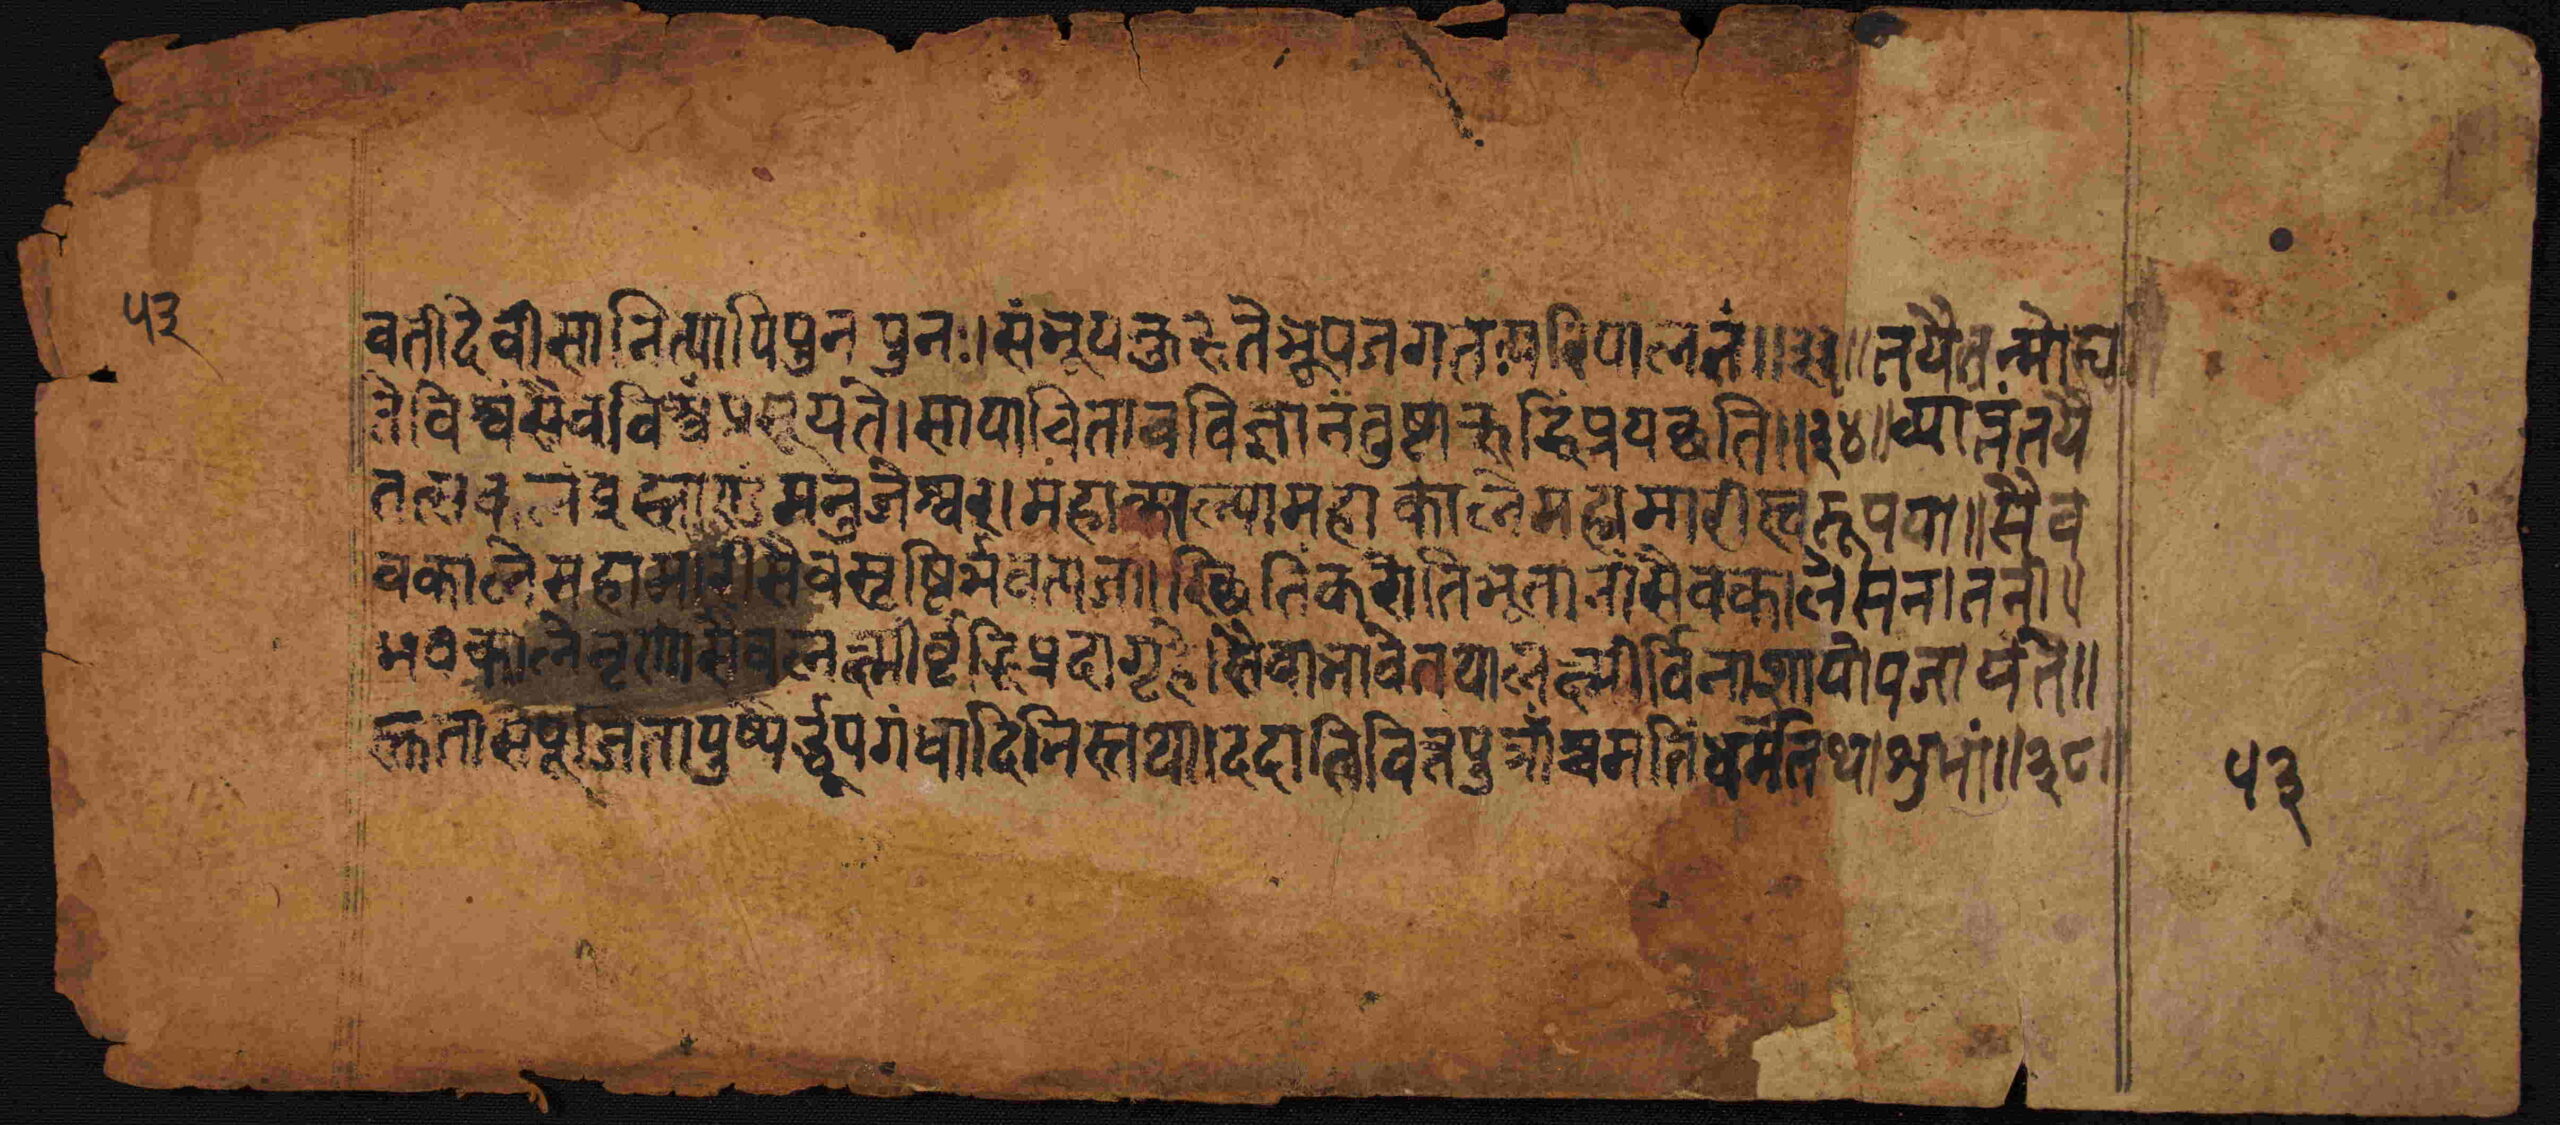 ५३
वतीदेवीसानित्यापिपुन पुनः।संभूयकुरुतेभूपजगतःपरिपालनं॥३३॥तयैतन्मोह्य
तेविश्वंसैवविश्वंप्रसूयते।सायाचिताचविज्ञानंतुष्टाऋद्धिंप्रयच्छति॥३४॥व्याप्तंतयै
तत्सकलंब्रह्माण्डंमनुजेश्वर।महाकाल्यामहाकालेमहामारीस्वरूपया॥सैव
वकालेमहामारीसैवसृष्टिर्भवत्यजा।स्थितिंकरोतिभूतानांसैवकालेसनातनी॥
भवकालेनृणांसैवलक्ष्मीर्वृद्धिप्रदागृहे।सैवाभावेतथालक्ष्मीर्विनाशायोपजायते॥
स्तुतासंपूजितापुष्पैर्द्धूपगंधादिभिस्तथा।ददातिवित्तपुत्रांश्चमतिंधर्मेतथाशुभां॥३८॥
५३